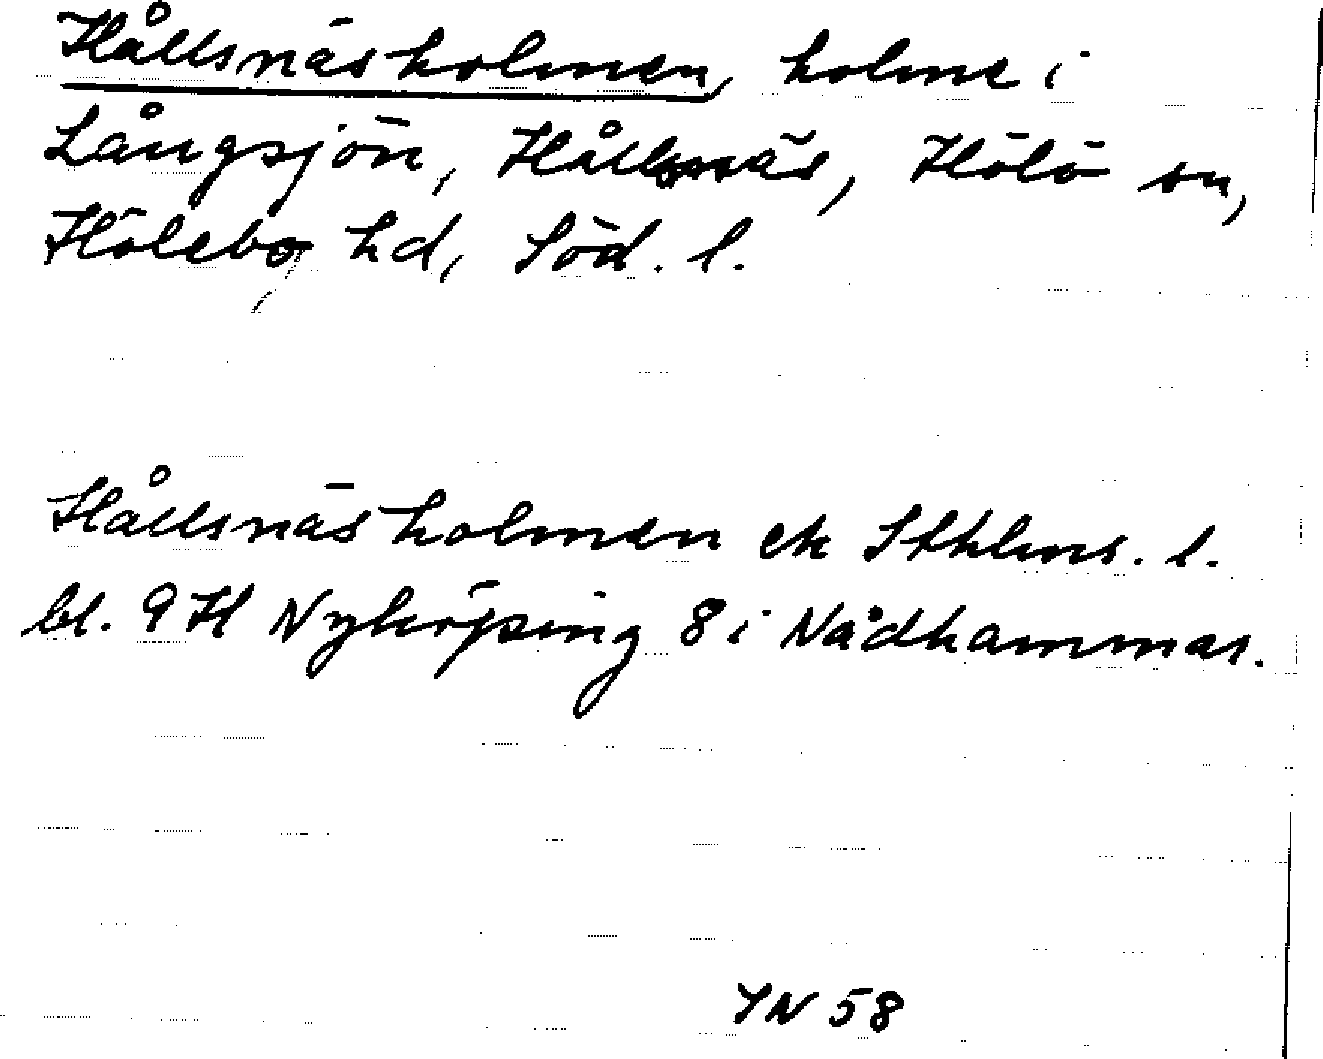 Hållsnäsholmen, holme i
Långsjön, Hållsnäs, Hölö sn,
Hölebo hd, Söd. l.
Hållsnäsholmen ek Sthlms. l.
bl. 9 H Nyköping 8 i Nådhammar.
YN 58